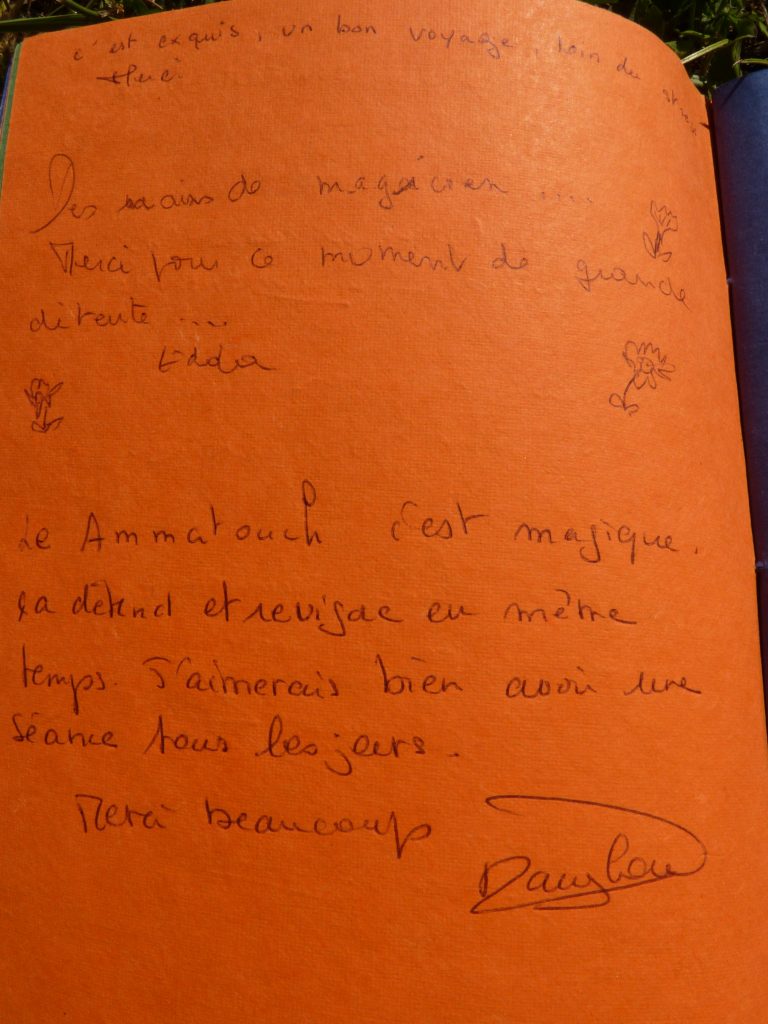 c'est exquis, un bon voyage, loin du stress
Merci
Des mains de magicien ....
Merci pour ce moment de grande
détente ....
Edda
Le Ammatouch c'est magique.
ça détend et revigore en même
temps. J'aimerais bien avoir une
séance tous les jours.
Merci beaucoup